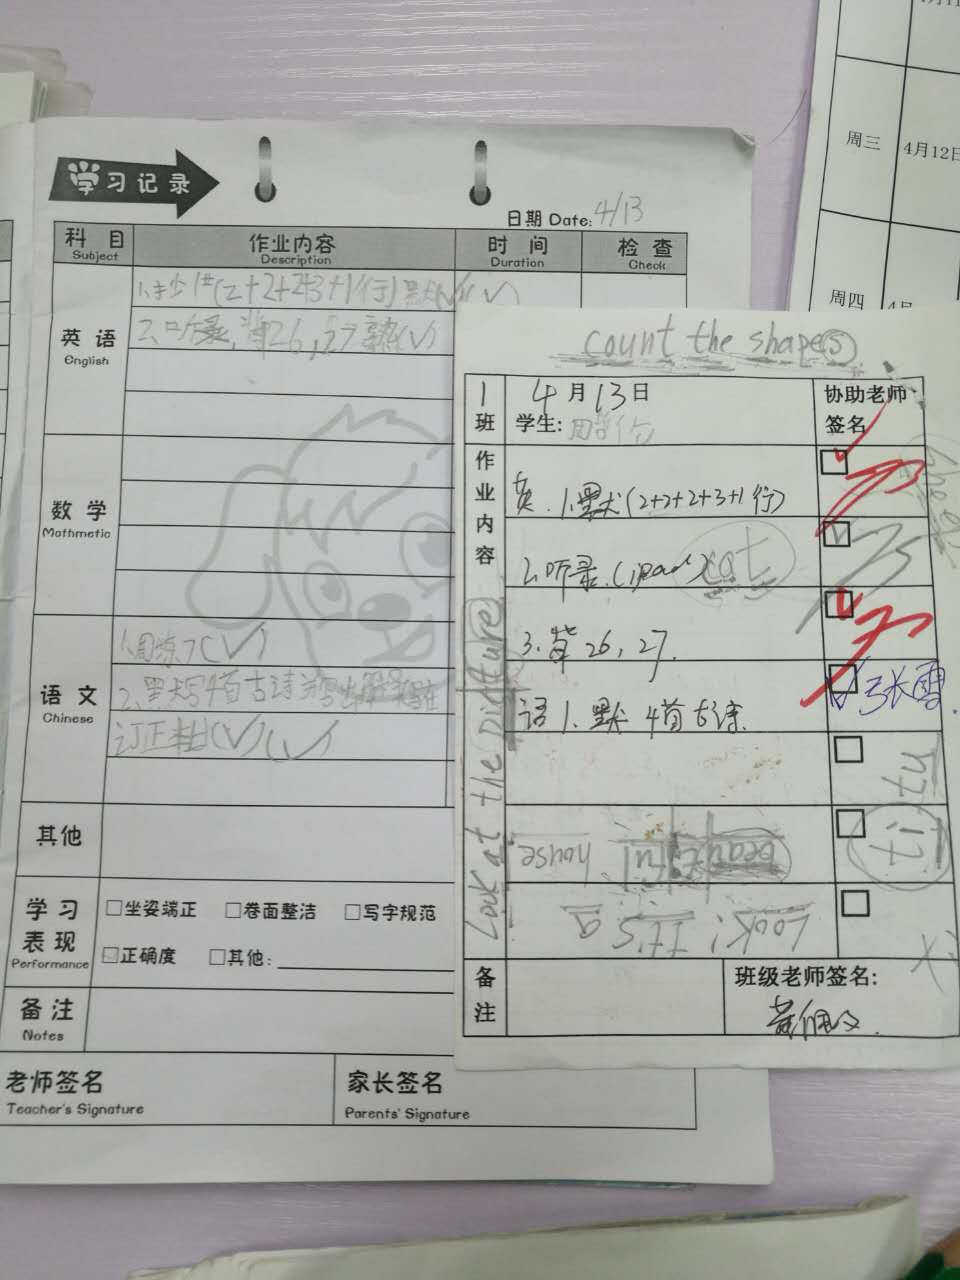 学习记录
日期 Date: 4/13
科目 作业内容 时间 检查
Subject Description Duration Check
英语
English
2.听录,背26,27熟(√)
数学
Mathmetic
语文
Chinese
1.周练7(√)
2.默写4首古诗
订正 (√)(√)
其他
学习表现
Performance
□坐姿端正 □卷面整洁 □写字规范
□正确度 □其他:
备注
Notes
老师签名
Teacher's Signature
家长签名
Parents' Signature
周三 4月12日
周四 4月
count the shapes
1班
4月13日
学生:
协助老师
签名
作业内容
英.1.默(2+2+2+3+1行)
2.听录.(ipad) cat
3.背26,27.
语1.默4首古诗.
张雪.
Look at the picture
beautiful house
Look! It's a
备注
班级老师签名: